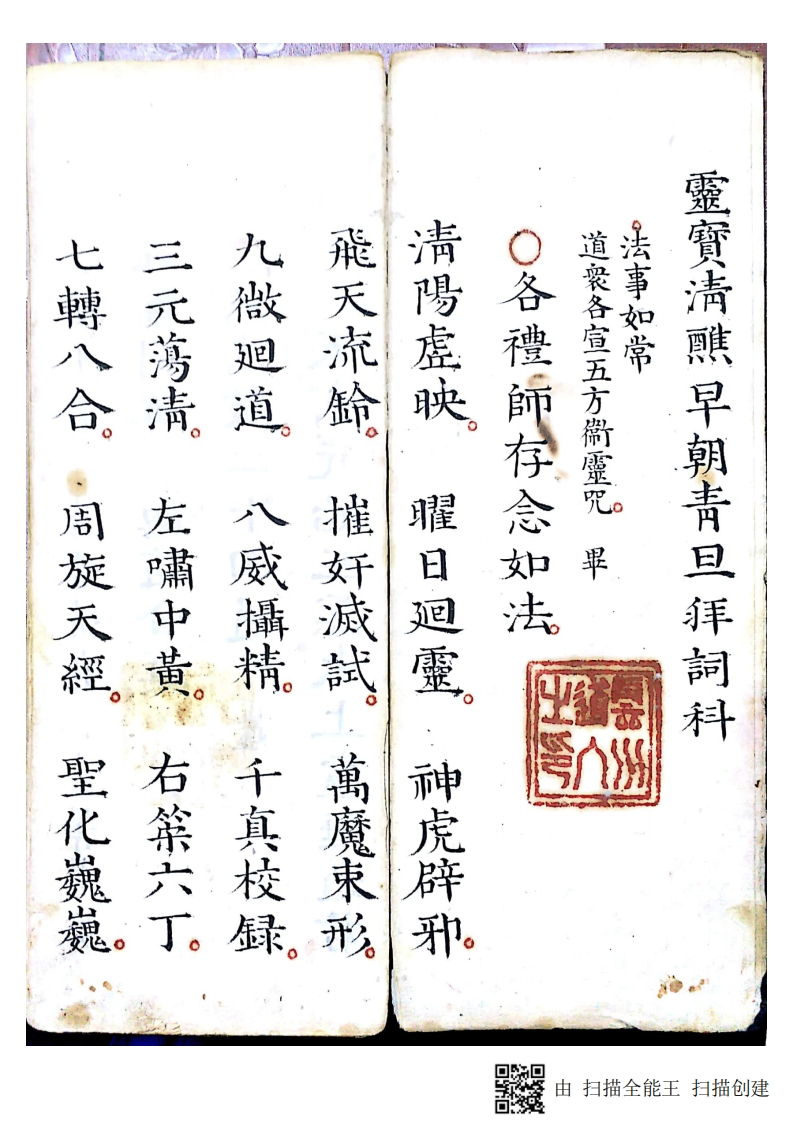 靈寶清醮早朝青旦拜詞科
法事如常
道衆各宣五方衞靈咒 畢
各禮師存念如法
清陽虛映 曜日廻靈 神虎辟邪
飛天流鈴 摧奸滅試 萬魔束形
九微廻道 八威攝精 千真校録
三元蕩清 左嘯中黃 右策六丁
七轉八合 周旋天經 聖化巍巍
由 扫描全能王 扫描创建